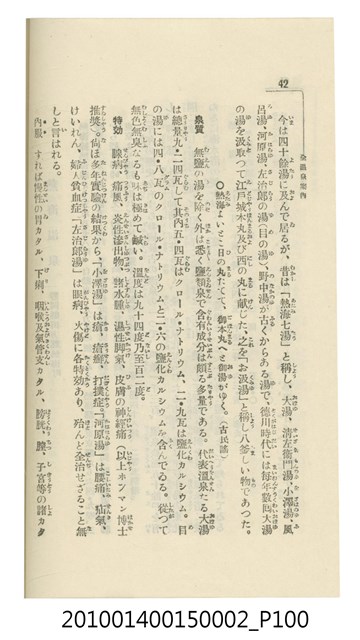 42
全國温泉案内
今は四十餘湯に及んで居るが、昔は「熱海七湯」と稱し、大湯、清左衞門湯、小澤湯、風
呂湯、河原湯、左治郎の湯（目の湯）、野中湯が古くからある湯で、徳川時代には毎年數囘大湯
の湯を汲取つて江戸城本丸及び西の丸に獻じた、之を「お汲湯」と稱し八釜しい物であつた。
○熱海よいとこ日の丸たてて、御本丸へと御湯がゆく。（古民謠）
泉質　無鹽の湯を除く外は悉く鹽類泉で含有成分は頗る多量である。代表温泉たる大湯
は總量九・二四瓦して其内五・四瓦はクロール・ナトリウム、二・九瓦は鹽化カルシウム。目
の湯には四・八瓦のクロール・ナトリウムと二・六の鹽化カルシウムを含んでゐる。從つて
無色無臭なるも味は極めて鹹い。温度は九十四度乃至百二度。
特効　腺病、痛風、炎性滲出物、諸水腫、濕性脚氣、皮膚の神經痛（以上ホンマン博士
推奬）。尚ほ多年實驗の結果から「小澤湯」は瘡、瘡癬、打撲症。「河原湯」は腰痛、疝氣、
けいれん、婦人貧血症「左治郎湯」は眼病、火傷に各特効あり、殆んど全治せざること無
しと言はれる。
内服　すれば慢性の胃カタル、下痢、咽喉及氣管支カタル、膀胱、膣、子宮等の諸カタ
201001400150002_P100